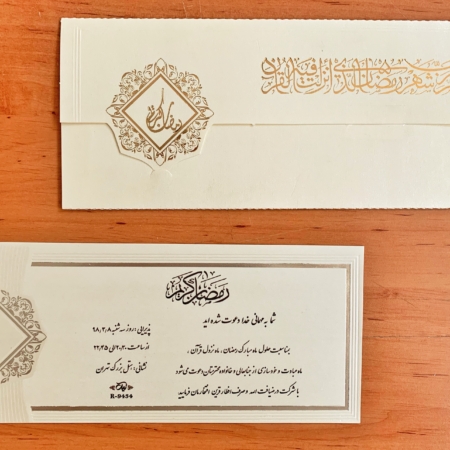 شهر رمضان الذی انزلت فیه القرآن
رمضان کریم
رمضان کریم
شما به مهمانی خدا دعوت شده اید
بمناسبت حلول ماه مبارک رمضان، ماه نزول قرآن،
ماه عبادت و خودسازی از جنابعالی و خانواده محترمتان دعوت می شود
با شرکت در ضیافت الله و صرف افطار قرین افتخارمان فرمایید
پذیرایی: روز سه شنبه ۹۸,۲,۸
از ساعت ۲۰,۳۰ الی ۲۲,۴۵
نشانی: هتل بزرگ تهران
R-9454